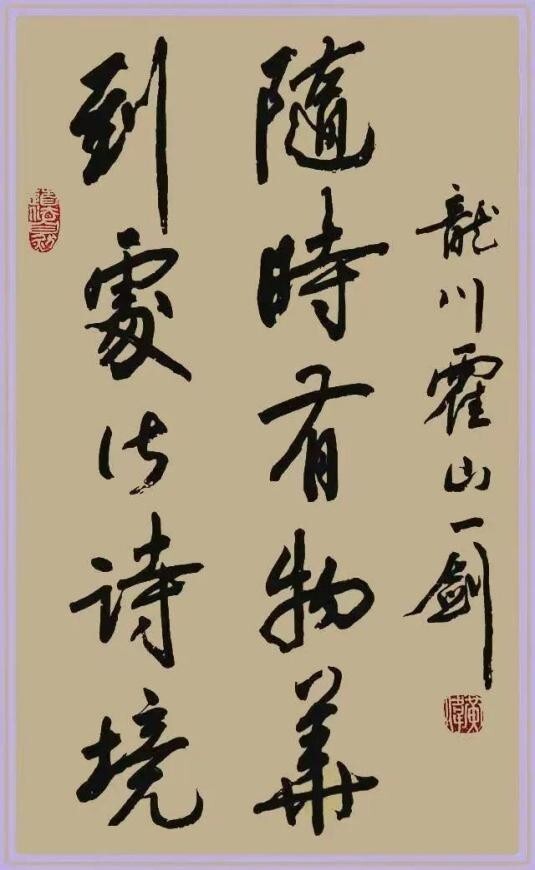 到處皆詩境
隨時有物華
龍川霍山一劍